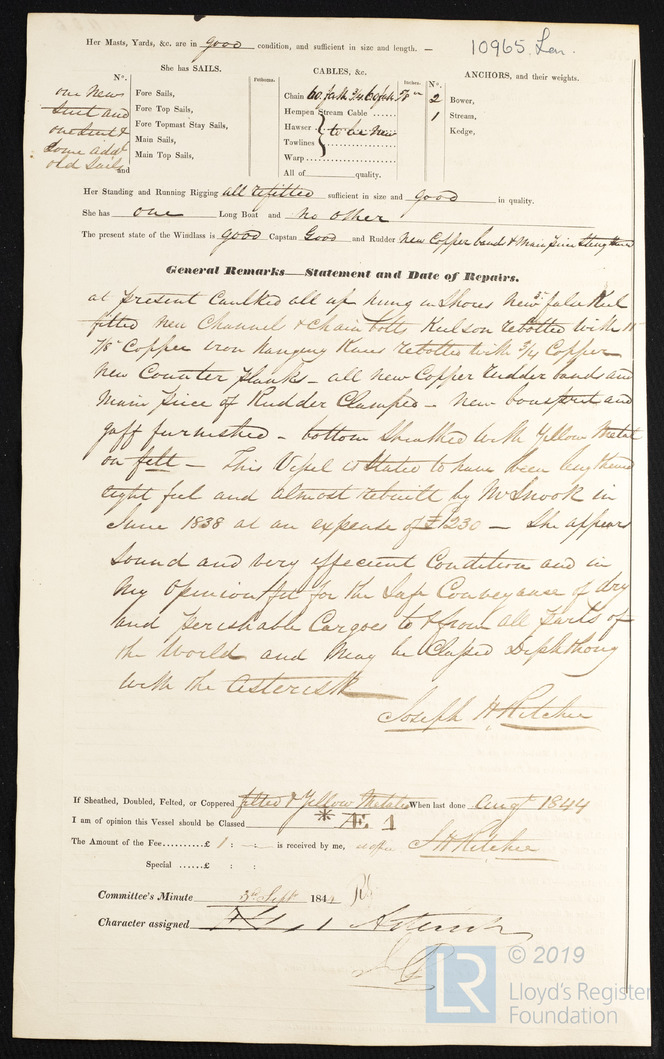 Her Masts, Yards, &c. are in good condition, and sufficient in size and length. —
10965 Lon.
She has SAILS.
CABLES, &c.
ANCHORS, and their weights.
N°.
Fathoms.
Inches.
N°.
one New Suit and one Suit & Some add^l old Sails and
Fore Sails,
Fore Top Sails,
Fore Topmast Stay Sails,
Main Sails,
Main Top Sails,
Chain 60 fath 3/4 60 fath 7/8 in
Hempen Stream Cable
Hawser } to be New
Towlines
Warp
All of quality.
2 Bower,
1 Stream,
Kedge,
Her Standing and Running Rigging all refitted sufficient in size and good in quality.
She has one Long Boat and no other
The present state of the Windlass is good Capstan Good and Rudder New Copper bands & Main piece Strengthened
General Remarks—Statement and Date of Repairs.
at present Caulked all up hung in Shores New false Keel
fitted new Channel & Chain bolts Keelson rebolted with 11
7/8 Copper iron hanging Knees rebolted with 3/4 Copper
New Counter planks – all new Copper Rudder bands and
Main piece of Rudder Clamped – new bowsprit and
gaff furnished – bottom Sheathed with Yellow Metal
on felt – This Vessel is Stated to have been lengthened
eight feet and almost rebuilt by Mr Snook in
June 1838 at an expense of £1230 – She appears
Sound and very efficient Condition and in
My Opinion fit for the Safe Conveyance of dry
and perishable Cargoes to & from all parts of
the World and May be Classed Diphthong
with the asterisk
Joseph H Ritchie
If Sheathed, Doubled, Felted, or Coppered felted & Yellow Metaled When last done Augt 1844
I am of opinion this Vessel should be Classed * Æ 1
The Amount of the Fee..........£ 1 : – : – is received by me, J H Ritchie
Special ......£ : :
Committee's Minute 3rd Septr 1844
Character assigned Æ 1 Asterisk
LR
© 2019
Lloyd's Register
Foundation